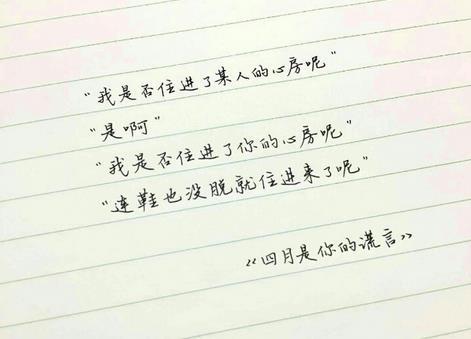 “我是否住进了某人的心房呢”
“是啊”
“我是否住进了你的心房呢”
“连鞋也没脱就住进来了呢”
《四月是你的谎言》